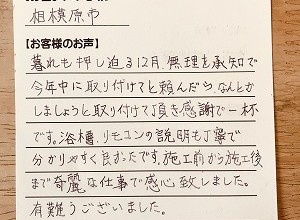 相模原市
【お客様のお声】
暮れも押し迫る12月、無理を承知で
今年中に取り付けてと頼んだらなんとか
しましょうと取り付けて頂き感謝で一杯
です。浴槽、リモコンの説明も丁寧で
分かりやすく良かったです。施工前から施工後
まで奇麗な仕事で感心致しました。
有難うございました。